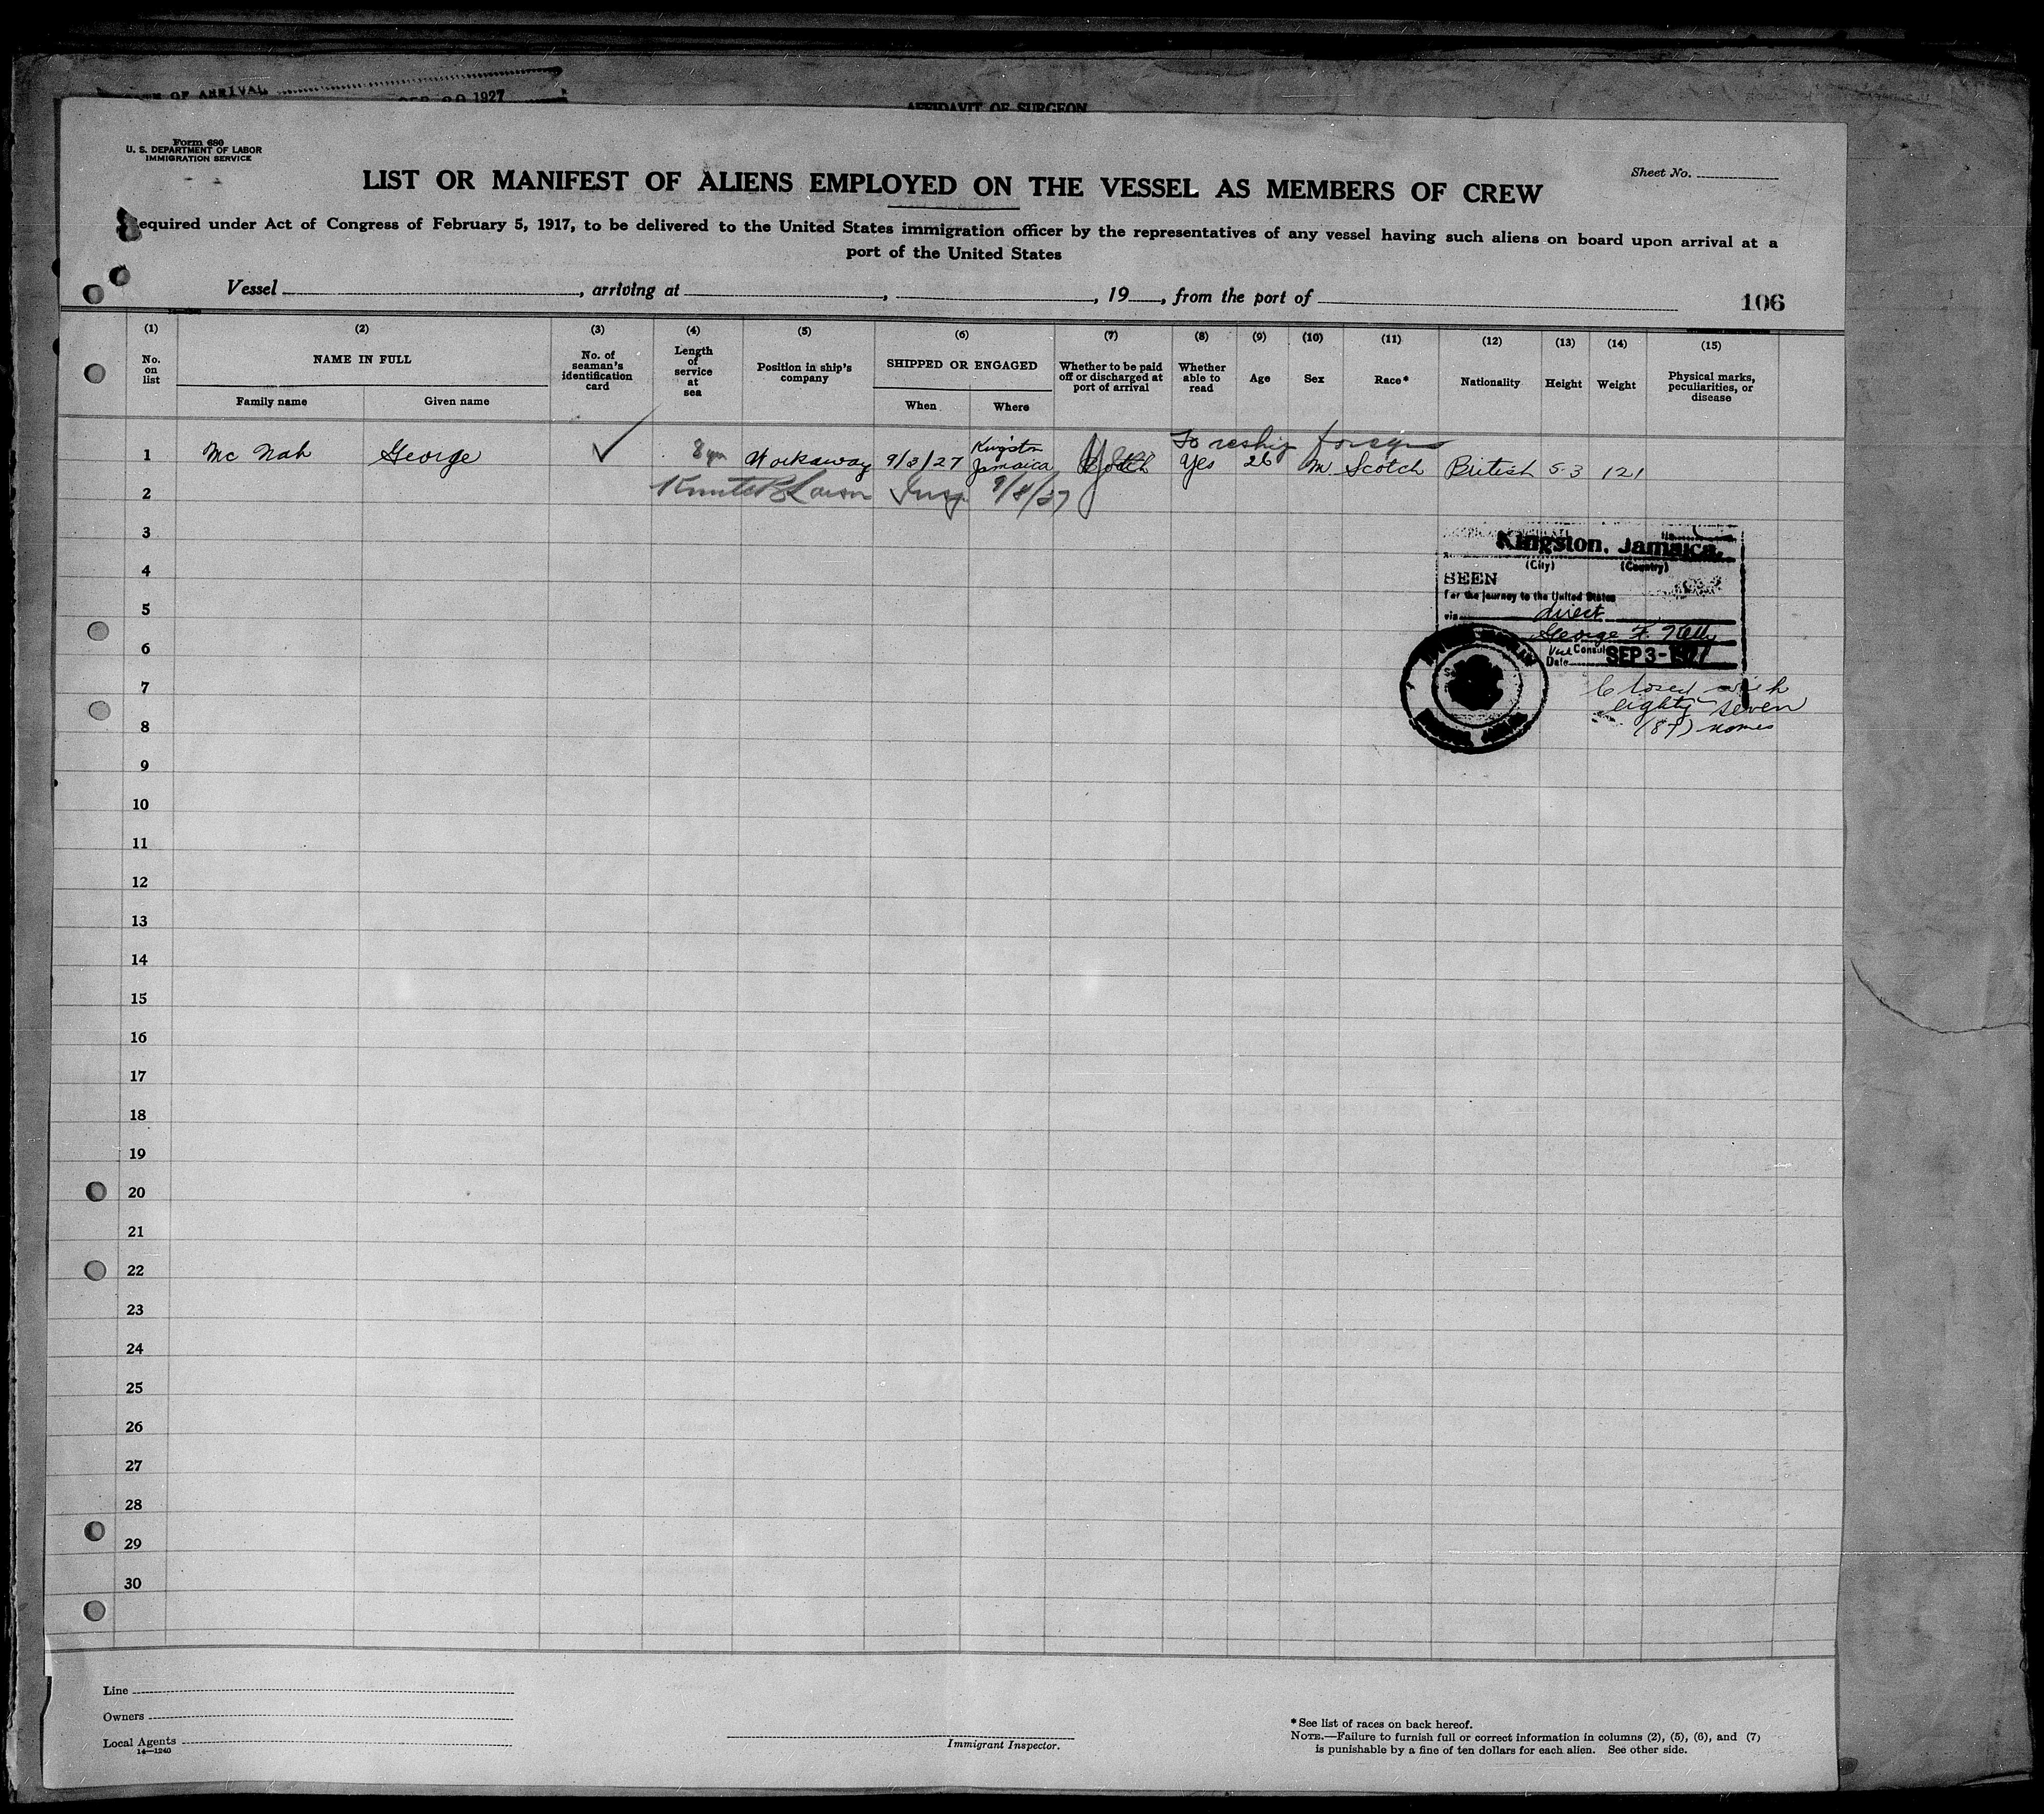 OF ARRIVAL
1927
AFFIDAVIT OF SURGEON
Form 680
U. S. DEPARTMENT OF LABOR
IMMIGRATION SERVICE
Sheet No.
LIST OR MANIFEST OF ALIENS EMPLOYED ON THE VESSEL AS MEMBERS OF CREW
equired under Act of Congress of February 5, 1917, to be delivered to the United States immigration officer by the representatives of any vessel having such aliens on board upon arrival at a
port of the United States
Vessel , arriving at , , 19 , from the port of
106
(1) (2) (3) (4) (5) (6) (7) (8) (9) (10) (11) (12) (13) (14) (15)
No. on list
NAME IN FULL
Family name Given name
No. of seaman's identification card
Length of service at sea
Position in ship's company
SHIPPED OR ENGAGED
When Where
Whether to be paid off or discharged at port of arrival
Whether able to read
Age
Sex
Race*
Nationality
Height
Weight
Physical marks, peculiarities, or disease
To reship foreign
1 Mc Nah George ✓ 8 yrs Workaway 9/3/27 Kingston Jamaica Yes 26 M Scotch British 5-3 121
2 Insp 9/8/27
3
Kingston, Jamaica
(City) (Country)
4
SEEN
for the journey to the United States
5
via direct
George F. Kelly
6
Vice Consul
Date SEP 3-1927
7
Closed with
eighty-seven
(87) names
8
9
10
11
12
13
14
15
16
17
18
19
20
21
22
23
24
25
26
27
28
29
30
Line
Owners
Local Agents
14—1240
Immigrant Inspector.
* See list of races on back hereof.
NOTE.—Failure to furnish full or correct information in columns (2), (5), (6), and (7)
is punishable by a fine of ten dollars for each alien. See other side.